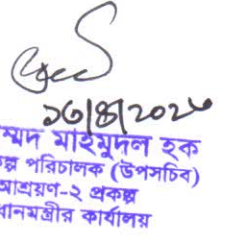 ১৩|৪|২০২৩
ম্মদ মাহমুদল হক
ল্প পরিচালক (উপসচিব)
আশ্রয়ণ-২ প্রকল্প
ধানমন্ত্রীর কার্যালয়